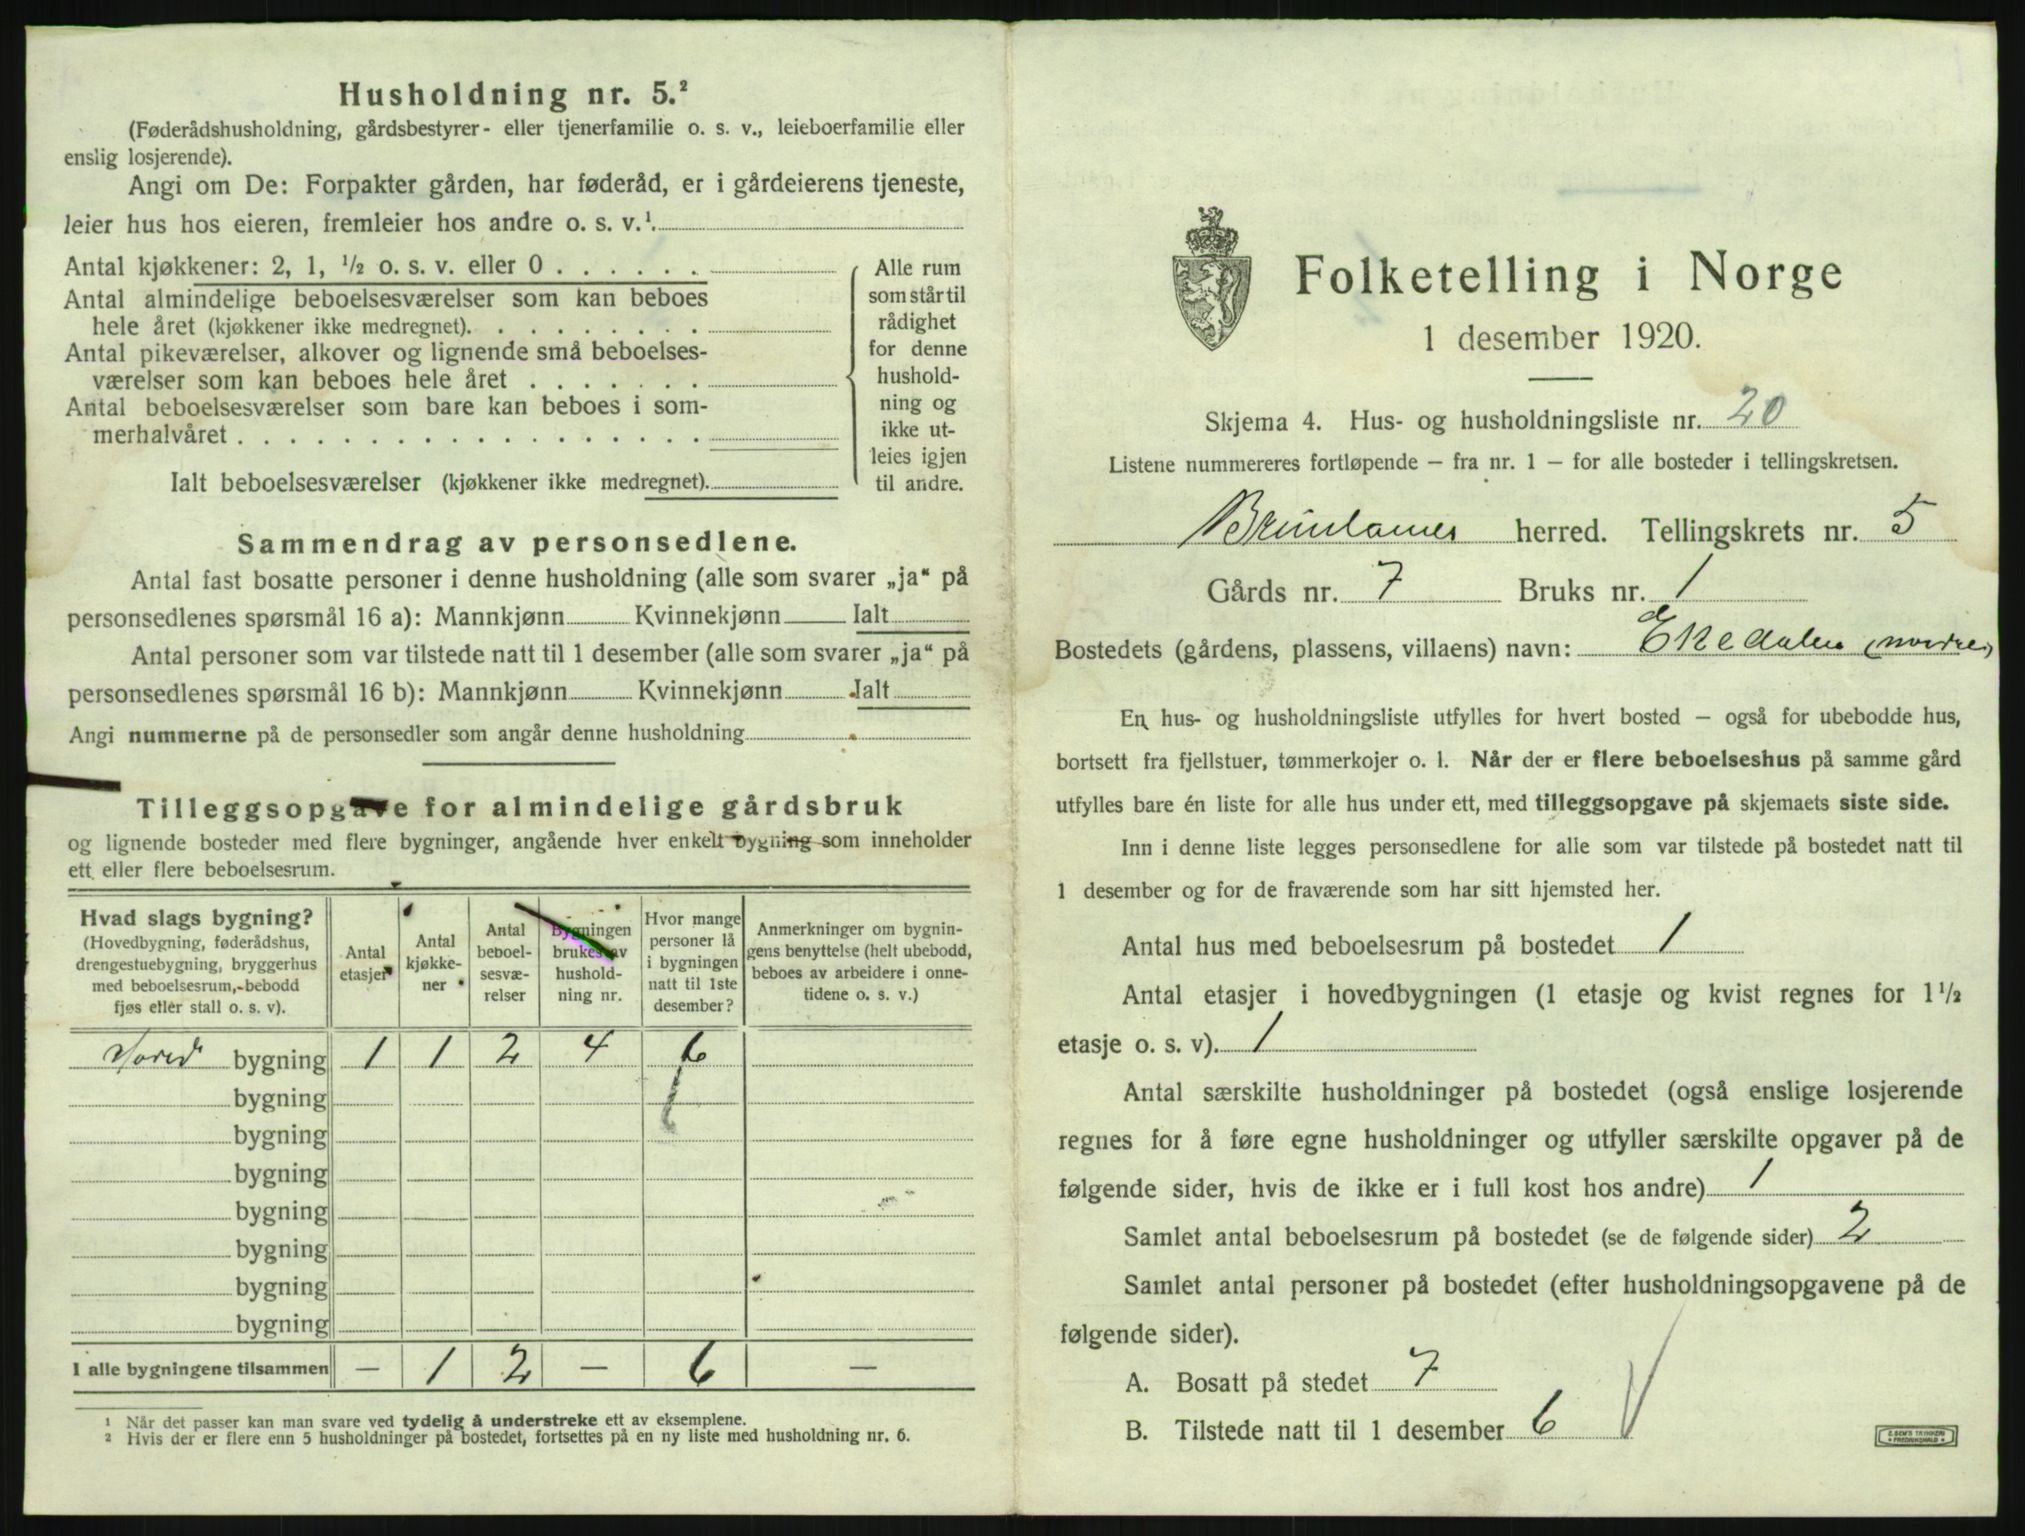 Husholdning nr. 5.²
(Føderådshusholdning, gårdsbestyrer- eller tjenerfamilie o. s. v., leieboerfamilie eller
enslig losjerende).
Angi om De: Forpakter gården, har føderåd, er i gårdeierens tjeneste,
leier hus hos eieren, fremleier hos andre o. s. v.¹.
Antal kjøkkener: 2, 1, ½ o. s. v. eller 0 . . . . . .
Antal almindelige beboelsesværelser som kan beboes
hele året (kjøkkener ikke medregnet). . . . . . . . . .
Antal pikeværelser, alkover og lignende små beboelses-
værelser som kan beboes hele året . . . . . . .
Antal beboelsesværelser som bare kan beboes i som-
merhalvåret . . . . . . . . . . . . . . . . . .
Ialt beboelsesværelser (kjøkkener ikke medregnet).
Alle rum
som står til
rådighet
for denne
hushold-
ning og
ikke ut-
leies igjen
til andre.
Sammendrag av personsedlene.
Antal fast bosatte personer i denne husholdning (alle som svarer „ja“ på
personsedlenes spørsmål 16 a): Mannkjønn Kvinnekjønn Ialt
Antal personer som var tilstede natt til 1 desember (alle som svarer „ja“ på
personsedlenes spørsmål 16 b): Mannkjønn Kvinnekjønn Ialt
Angi nummerne på de personsedler som angår denne husholdning
Tilleggsopgave for almindelige gårdsbruk
og lignende bosteder med flere bygninger, angående hver enkelt bygning som inneholder
ett eller flere beboelsesrum.
Hvad slags bygning?
(Hovedbygning, føderådshus,
drengestuebygning, bryggerhus
med beboelsesrum, bebodd
fjøs eller stall o. s. v).
Antal
etasjer
Antal
kjøkke-
ner
Antal
beboel-
sesvæ-
relser
Bygningen
brukes av
hushold-
ning nr.
Hvor mange
personer lå
i bygningen
natt til 1ste
desember?
Anmerkninger om bygnin-
gens benyttelse (helt ubebodd,
beboes av arbeidere i onne-
tidene o. s. v.)
Hoved bygning 1 1 2 4 6
bygning
bygning
bygning
bygning
bygning
bygning
bygning
I alle bygningene tilsammen — 1 2 — 6 —
¹ Når det passer kan man svare ved tydelig å understreke ett av eksemplene.
² Hvis der er flere enn 5 husholdninger på bostedet, fortsettes på en ny liste med husholdning nr. 6.
Folketelling i Norge
1 desember 1920.
Skjema 4. Hus- og husholdningsliste nr. 20
Listene nummereres fortløpende – fra nr. 1 – for alle bosteder i tellingskretsen.
Brunlanes herred. Tellingskrets nr. 5
Gårds nr. 7 Bruks nr. 1
Bostedets (gårdens, plassens, villaens) navn: Ekedalen (nordre)
En hus- og husholdningsliste utfylles for hvert bosted – også for ubebodde hus,
bortsett fra fjellstuer, tømmerkojer o. l. Når der er flere beboelseshus på samme gård
utfylles bare én liste for alle hus under ett, med tilleggsopgave på skjemaets siste side.
Inn i denne liste legges personsedlene for alle som var tilstede på bostedet natt til
1 desember og for de fraværende som har sitt hjemsted her.
Antal hus med beboelsesrum på bostedet 1
Antal etasjer i hovedbygningen (1 etasje og kvist regnes for 1½
etasje o. s. v). 1
Antal særskilte husholdninger på bostedet (også enslige losjerende
regnes for å føre egne husholdninger og utfyller særskilte opgaver på de
følgende sider, hvis de ikke er i full kost hos andre) 1
Samlet antal beboelsesrum på bostedet (se de følgende sider) 2
Samlet antal personer på bostedet (efter husholdningsopgavene på de
følgende sider).
A. Bosatt på stedet 7
B. Tilstede natt til 1 desember 6